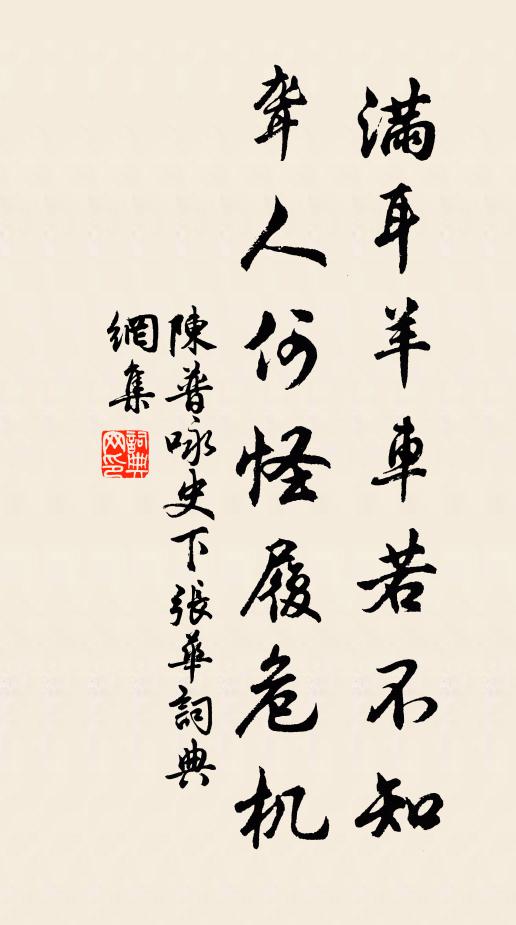 滿耳羊車若不知
聾人何怪履危机
陳普咏史下張華詞典
網集
詞典网印